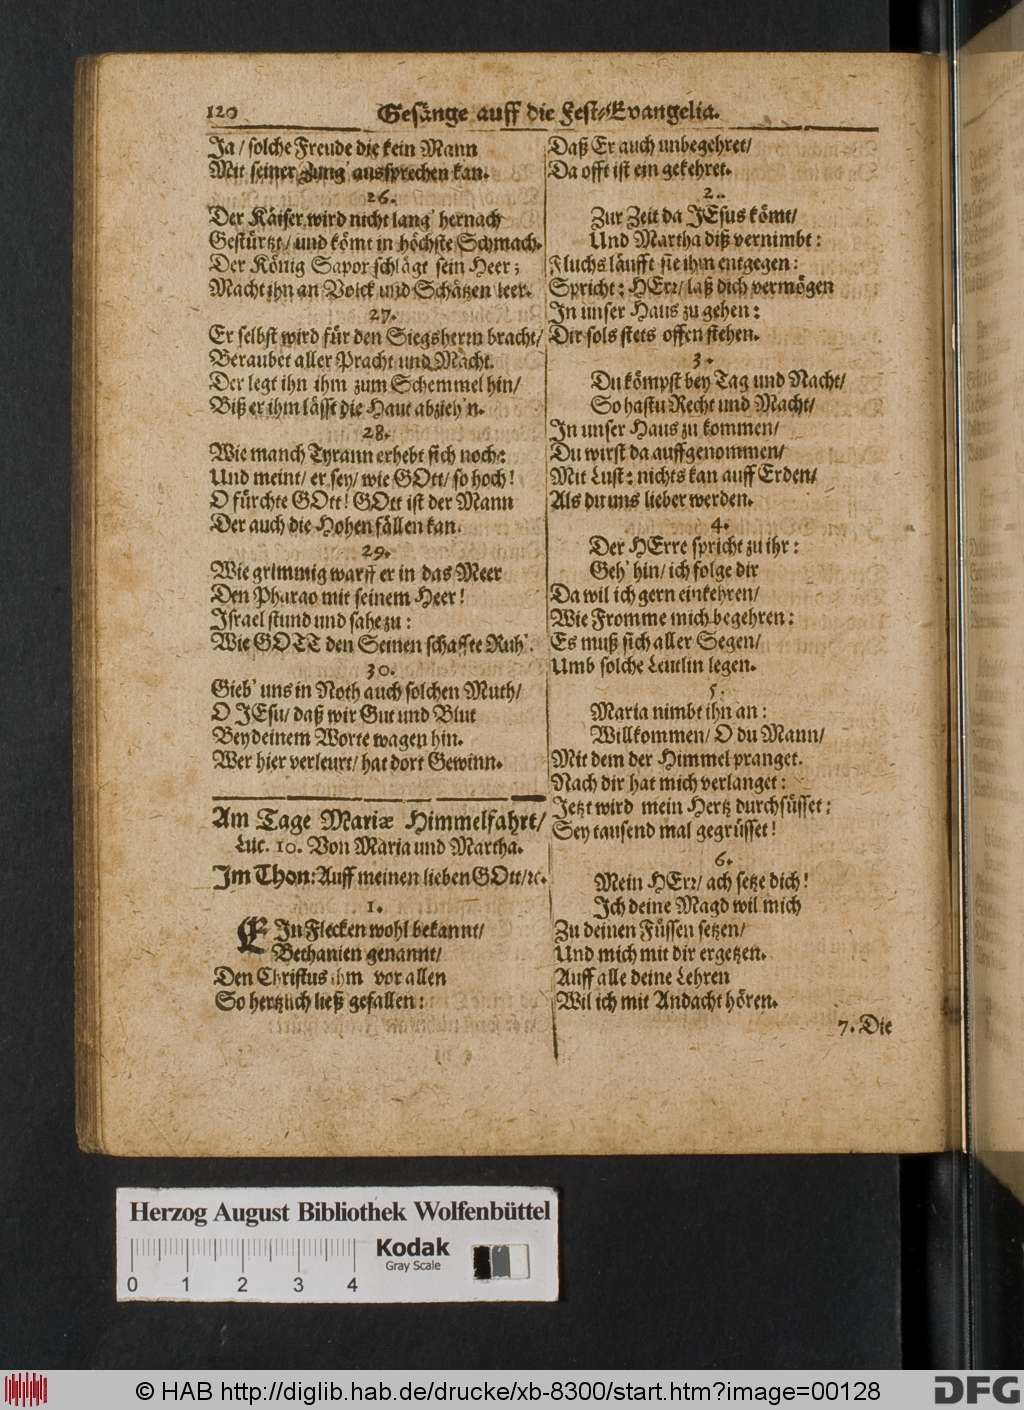 120 Gesänge auff die Fest-Evangelia.
Ja / solche Freude die kein Mann
Mit seiner Zung' aussprechen kan.
26.
Der Käiser wird nicht lang' hernach
Gestürtzt / und kömt in höchste Schmach.
Der König Sapor schlägt sein Heer;
Macht ihn an Volck und Schätzen leer.
27.
Er selbst wird für den Siegsherrn bracht/
Beraubet aller Pracht und Macht.
Der legt ihn ihm zum Schemmel hin/
Biß er ihm lässt die Haut abzieh'n.
28.
Wie manch Tyrann erhebt sich noch:
Und meint / er sey / wie GOtt / so hoch!
O fürchte GOtt! GOtt ist der Mann
Der auch die Hohen fällen kan.
29.
Wie grimmig warff er in das Meer
Den Pharao mit seinem Heer!
Israel stund und sahe zu:
Wie GOTT den Seinen schaffte Ruh'.
30.
Gieb' uns in Noth auch solchen Muth/
O JEsu / daß wir Gut und Blut
Bey deinem Worte wagen hin.
Wer hier verleurt / hat dort Gewinn.
Am Tage Mariæ Himmelfahrt/
Luc. 10. Von Maria und Martha.
Im Thon: Auff meinen lieben GOtt / ꝛc.
1.
EIn Flecken wohl bekannt/
Bethanien genannt/
Den Christus ihm vor allen
So hertzlich ließ gefallen:
Daß Er auch unbegehret/
Da offt ist eingekehret.
2.
Zur Zeit da JEsus kömt/
Und Martha diß vernimbt:
Fluchs läufft sie ihm entgegen:
Spricht: HErr / laß dich vermögen
In unser Haus zu gehen:
Dir sols stets offen stehen.
3.
Du kömpst bey Tag und Nacht/
So hastu Recht und Macht/
In unser Haus zu kommen/
Du wirst da auffgenommen/
Mit Lust: nichts kan auff Erden/
Als du uns lieber werden.
4.
Der HErre spricht zu ihr:
Geh' hin / ich folge dir
Da wil ich gern einkehren/
Wie Fromme mich begehren:
Es muß sich aller Segen/
Umb solche Leutlin legen.
5.
Maria nimbt ihn an:
Willkommen / O du Mann/
Mit dem der Himmel pranget.
Nach dir hat mich verlanget:
Jetzt wird mein Hertz durchsüsset:
Sey tausend mal gegrüsset!
6.
Mein HErr / ach setze dich!
Ich deine Magd wil mich
Zu deinen Füssen setzen/
Und mich mit dir ergetzen.
Auff alle deine Lehren
Wil ich mit Andacht hören.
7. Die
Herzog August Bibliothek Wolfenbüttel
Kodak
Gray Scale
0 1 2 3 4
© HAB http://diglib.hab.de/drucke/xb-8300/start.htm?image=00128
DFG